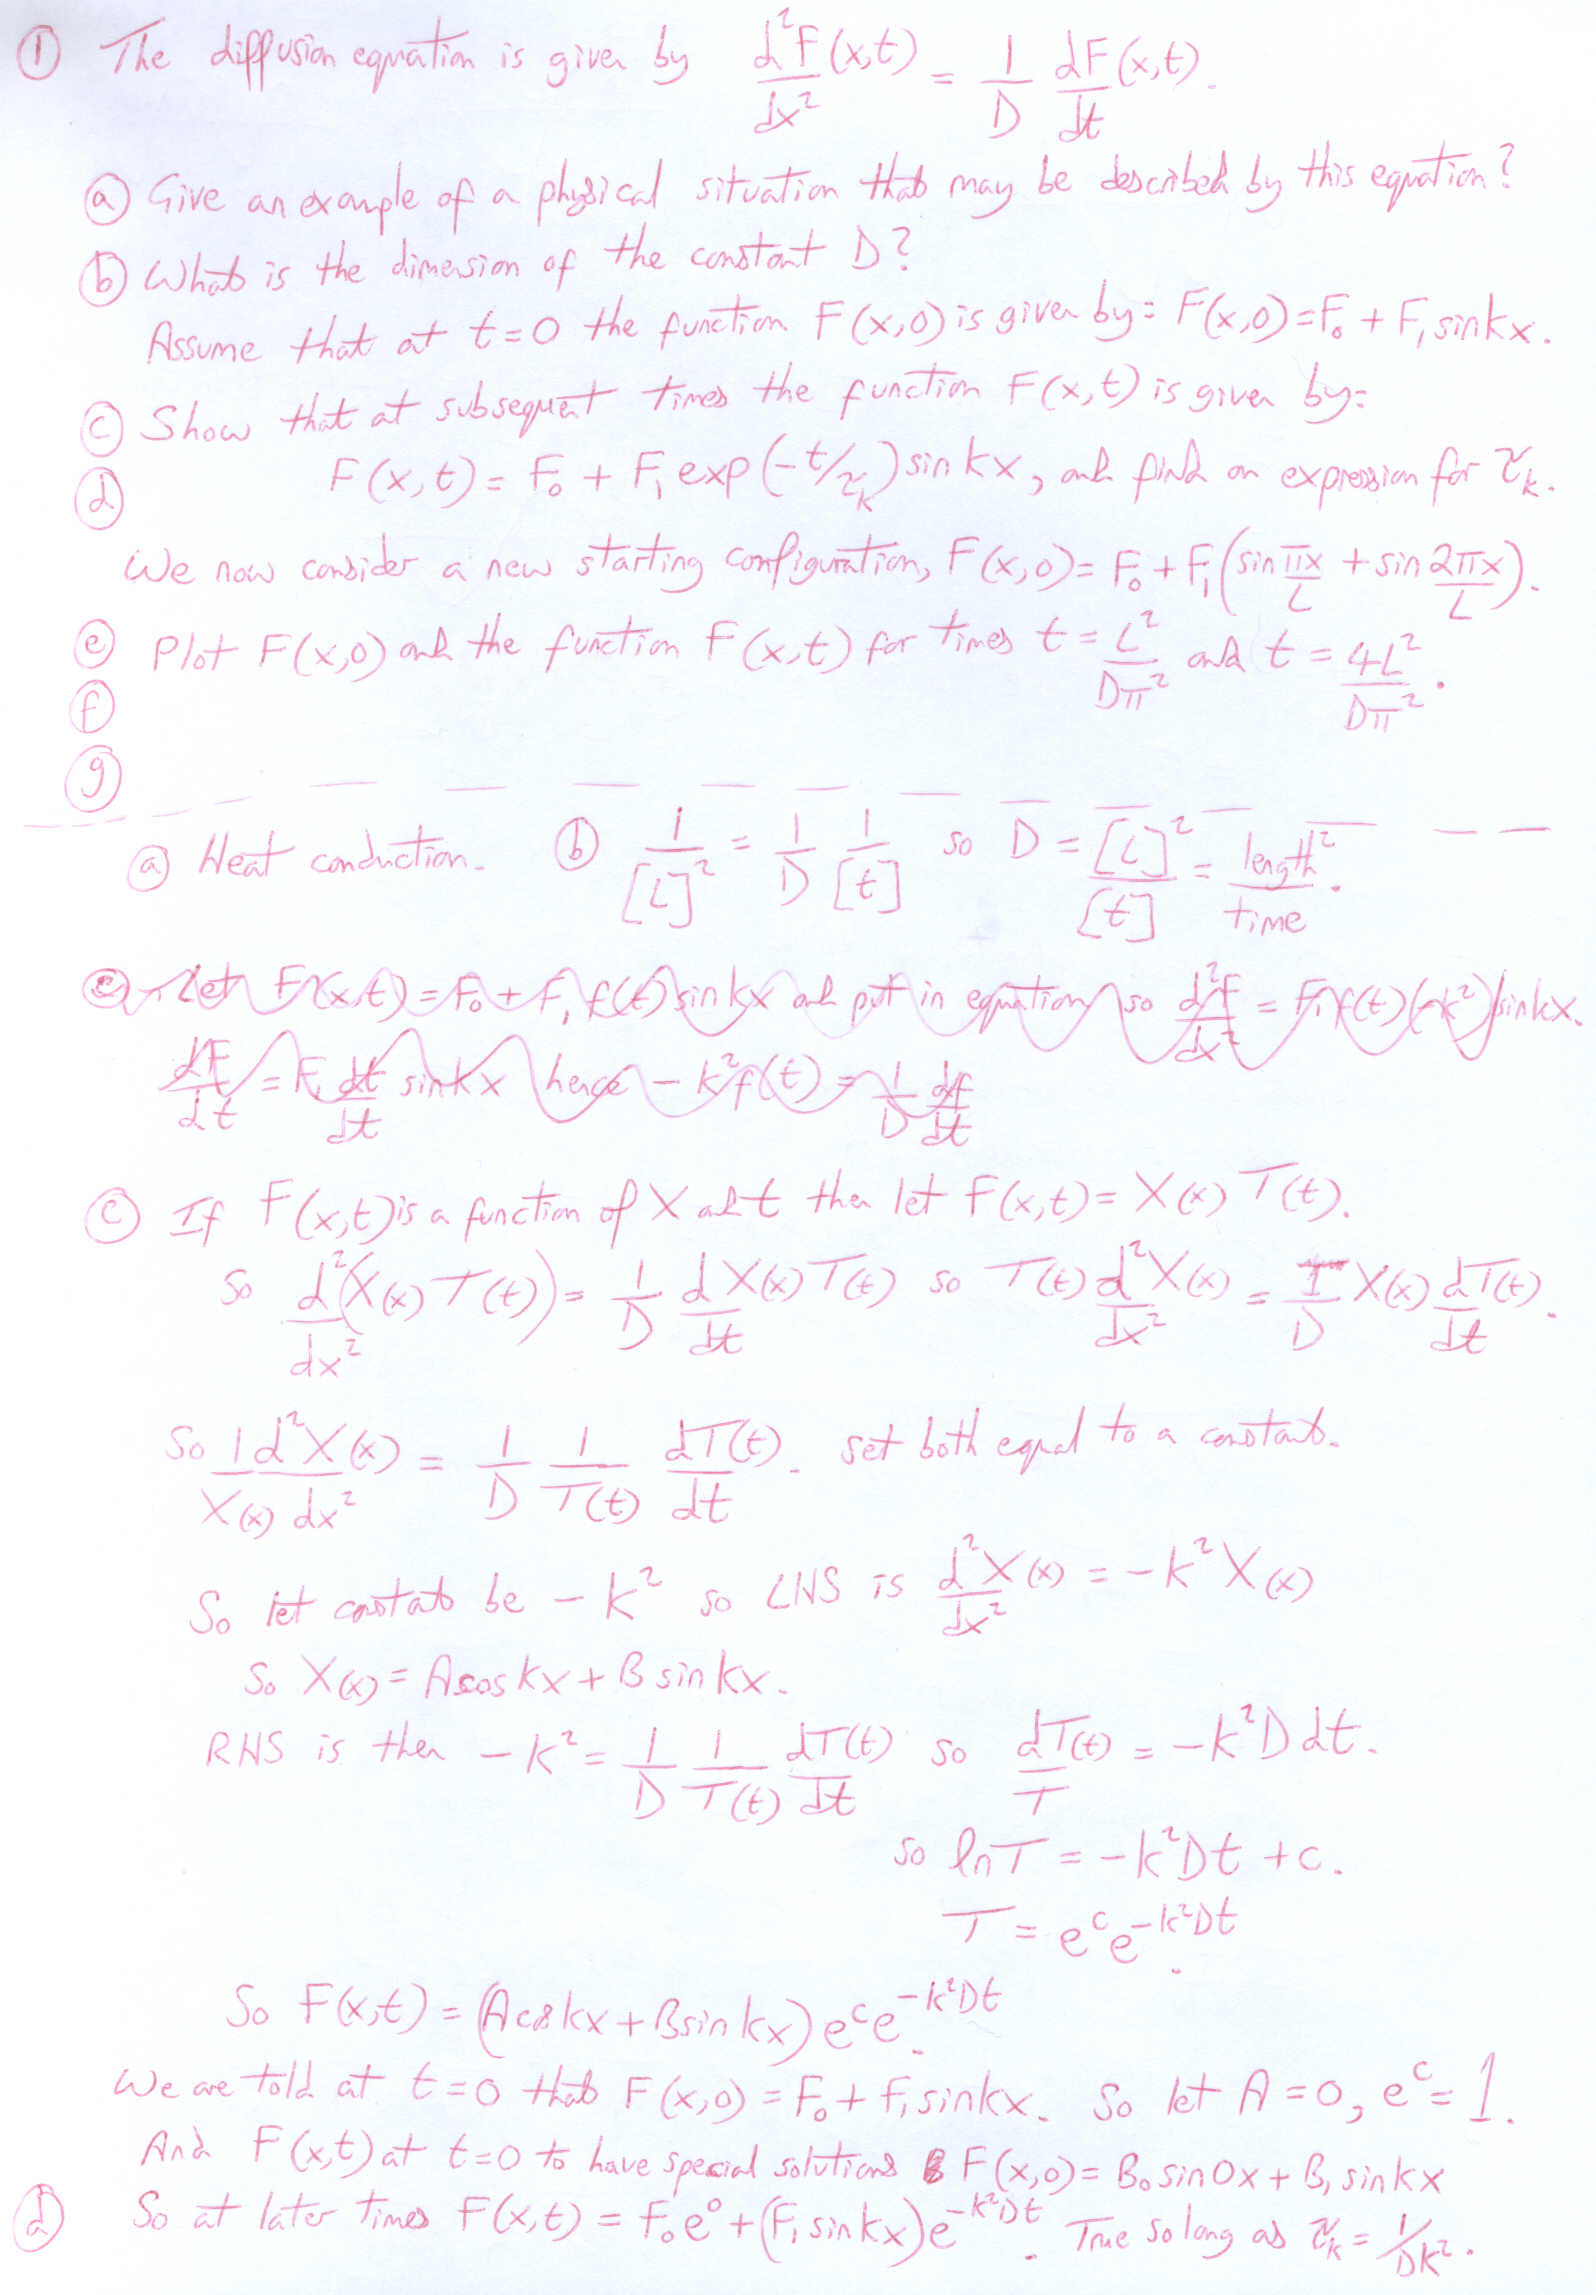 ① The diffusion equation is given by d²F(x,t)/dx² = 1/D dF(x,t)/dt.
ⓐ Give an example of a physical situation that may be described by this equation?
ⓑ What is the dimension of the constant D?
Assume that at t=0 the function F(x,0) is given by: F(x,0)=F₀ + F₁ sinkx.
ⓒ Show that at subsequent times the function F(x,t) is given by:
ⓓ F(x,t) = F₀ + F₁ exp(-t/τₖ) sin kx, and find an expression for τₖ.
We now consider a new starting configuration, F(x,0)= F₀ + F₁(sin πx/L + sin 2πx/L).
ⓔ Plot F(x,0) and the function F(x,t) for times t = L²/Dπ² and t = 4L²/Dπ².
ⓕ
ⓖ
ⓐ Heat conduction. ⓑ 1/[L]² = 1/D 1/[t] so D = [L]²/[t] = length²/time.
ⓒ Let F(x,t) = F₀ + F₁ f(t) sin kx and put in equation so d²F/dx² = F₁f(t)(-k²)sinkx.
dF/dt = F₁ df/dt sinkx hence - k²f(t) = 1/D df/dt
ⓒ If F(x,t) is a function of x and t then let F(x,t)= X(x) T(t).
So d²(X(x)T(t))/dx² = 1/D d X(x)T(t)/dt so T(t) d²X(x)/dx² = 1/D X(x) dT(t)/dt.
So 1/X(x) d²X(x)/dx² = 1/D 1/T(t) dT(t)/dt. set both equal to a constant.
So let constant be - k² so LHS is d²X(x)/dx² = -k²X(x)
So X(x) = Acos kx + B sin kx.
RHS is then -k² = 1/D 1/T(t) dT(t)/dt so dT(t)/T = -k²D dt.
so lnT = -k²Dt + c.
T = eᶜe^(-k²Dt).
So F(x,t) = (Acos kx + Bsin kx) eᶜe^(-k²Dt).
We are told at t=0 that F(x,0) = F₀ + F₁sinkx. So let A = 0, eᶜ = 1.
And F(x,t) at t=0 to have special solutions F(x,0)= B₀ sin0x + B₁ sin kx
ⓓ So at later times F(x,t) = F₀e⁰ + (F₁ sin kx)e^(-k²Dt). True so long as τₖ = 1/Dk².